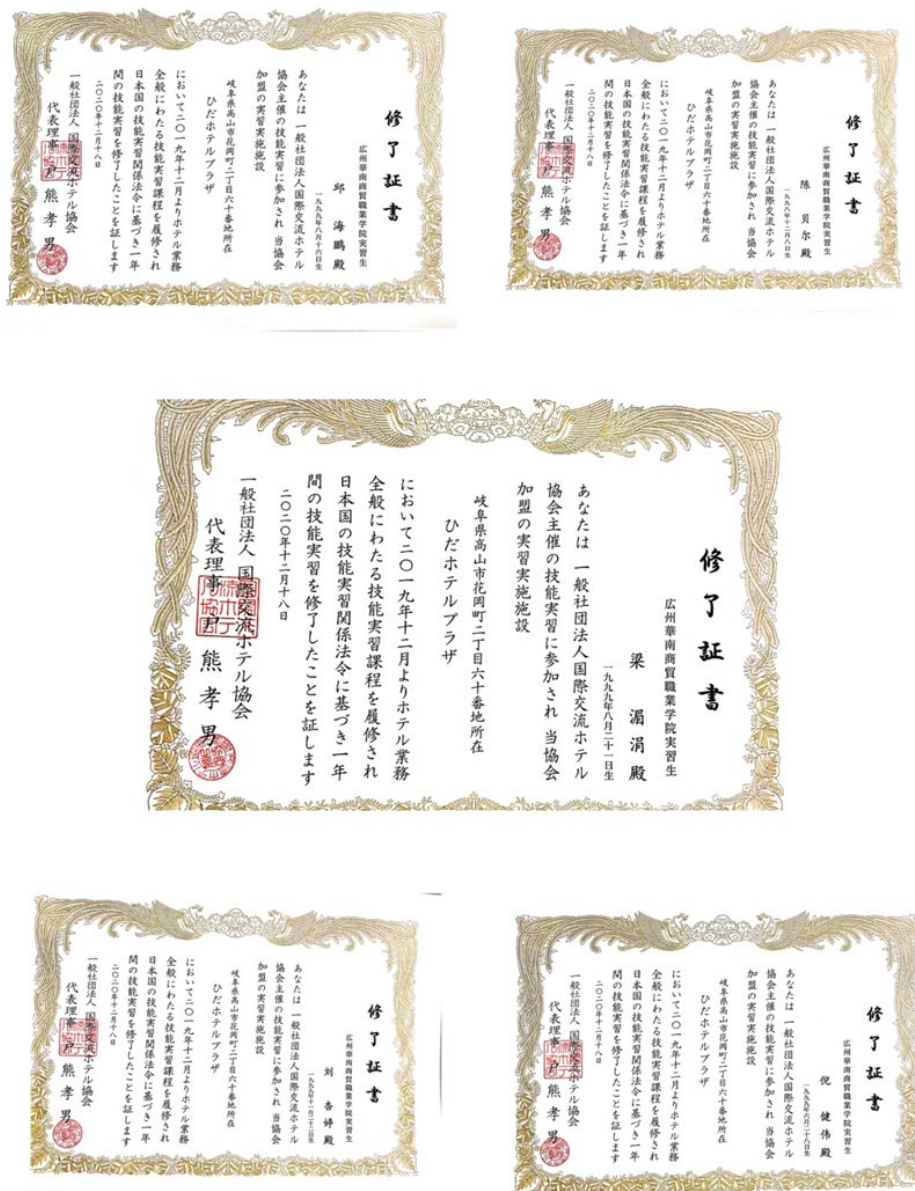 修了証書
広州華南商貿職業学院実習生
邱 海鵬殿
一九九九年八月十六日生
あなたは 一般社団法人国際交流ホテル
協会主催の技能実習に参加され 当協会
加盟の実習実施施設
岐阜県高山市花岡町二丁目六十番地所在
ひだホテルプラザ
において二〇一九年十二月よりホテル業務
全般にわたる技能実習課程を履修され
日本国の技能実習関係法令に基づき一年
間の技能実習を修了したことを証します
二〇二〇年十二月十八日
一般社団法人 国際交流ホテル協会
代表理事 戸熊孝男
修了証書
広州華南商貿職業学院実習生
陈 贝尔殿
一九九八年十二月八日生
あなたは 一般社団法人国際交流ホテル
協会主催の技能実習に参加され 当協会
加盟の実習実施施設
岐阜県高山市花岡町二丁目六十番地所在
ひだホテルプラザ
において二〇一九年十二月よりホテル業務
全般にわたる技能実習課程を履修され
日本国の技能実習関係法令に基づき一年
間の技能実習を修了したことを証します
二〇二〇年十二月十八日
一般社団法人 国際交流ホテル協会
代表理事 戸熊孝男
修了証書
広州華南商貿職業学院実習生
梁 湄涓殿
一九九九年八月二十一日生
あなたは 一般社団法人国際交流ホテル
協会主催の技能実習に参加され 当協会
加盟の実習実施施設
岐阜県高山市花岡町二丁目六十番地所在
ひだホテルプラザ
において二〇一九年十二月よりホテル業務
全般にわたる技能実習課程を履修され
日本国の技能実習関係法令に基づき一年
間の技能実習を修了したことを証します
二〇二〇年十二月十八日
一般社団法人 国際交流ホテル協会
代表理事 戸熊孝男
修了証書
広州華南商貿職業学院実習生
刘 杏婷殿
あなたは 一般社団法人国際交流ホテル
協会主催の技能実習に参加され 当協会
加盟の実習実施施設
岐阜県高山市花岡町二丁目六十番地所在
ひだホテルプラザ
において二〇一九年十二月よりホテル業務
全般にわたる技能実習課程を履修され
日本国の技能実習関係法令に基づき一年
間の技能実習を修了したことを証します
二〇二〇年十二月十八日
一般社団法人 国際交流ホテル協会
代表理事 戸熊孝男
修了証書
広州華南商貿職業学院実習生
倪 健伟殿
一九九九年六月二十八日生
あなたは 一般社団法人国際交流ホテル
協会主催の技能実習に参加され 当協会
加盟の実習実施施設
岐阜県高山市花岡町二丁目六十番地所在
ひだホテルプラザ
において二〇一九年十二月よりホテル業務
全般にわたる技能実習課程を履修され
日本国の技能実習関係法令に基づき一年
間の技能実習を修了したことを証します
二〇二〇年十二月十八日
一般社団法人 国際交流ホテル協会
代表理事 戸熊孝男